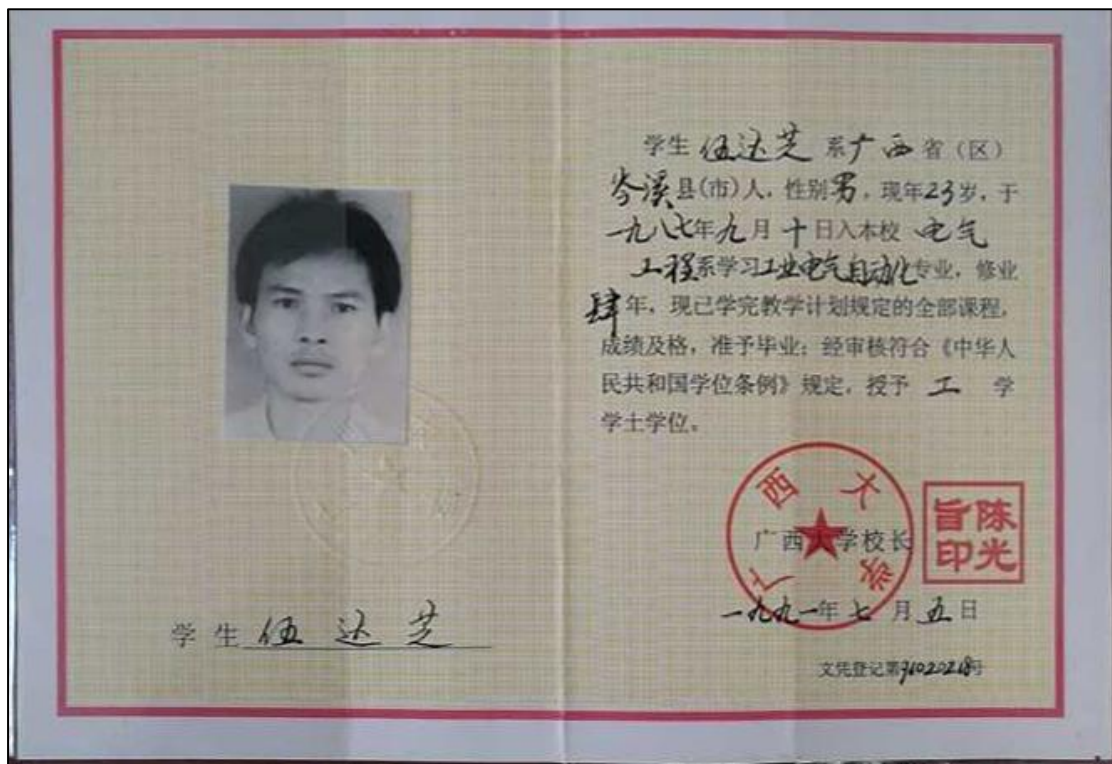 学生 伍达芝
学生 伍达芝 系广西省（区）
岑溪县(市)人，性别男，现年23岁，于
一九八七年九月十日入本校 电气
工程系学习工业电气自动化专业，修业
肆年，现已学完教学计划规定的全部课程，
成绩及格，准予毕业；经审核符合《中华人
民共和国学位条例》规定，授予 工 学
学士学位。
广西大学
广西大学校长
陈光旨印
一九九一年七月五日
文凭登记第9102021号